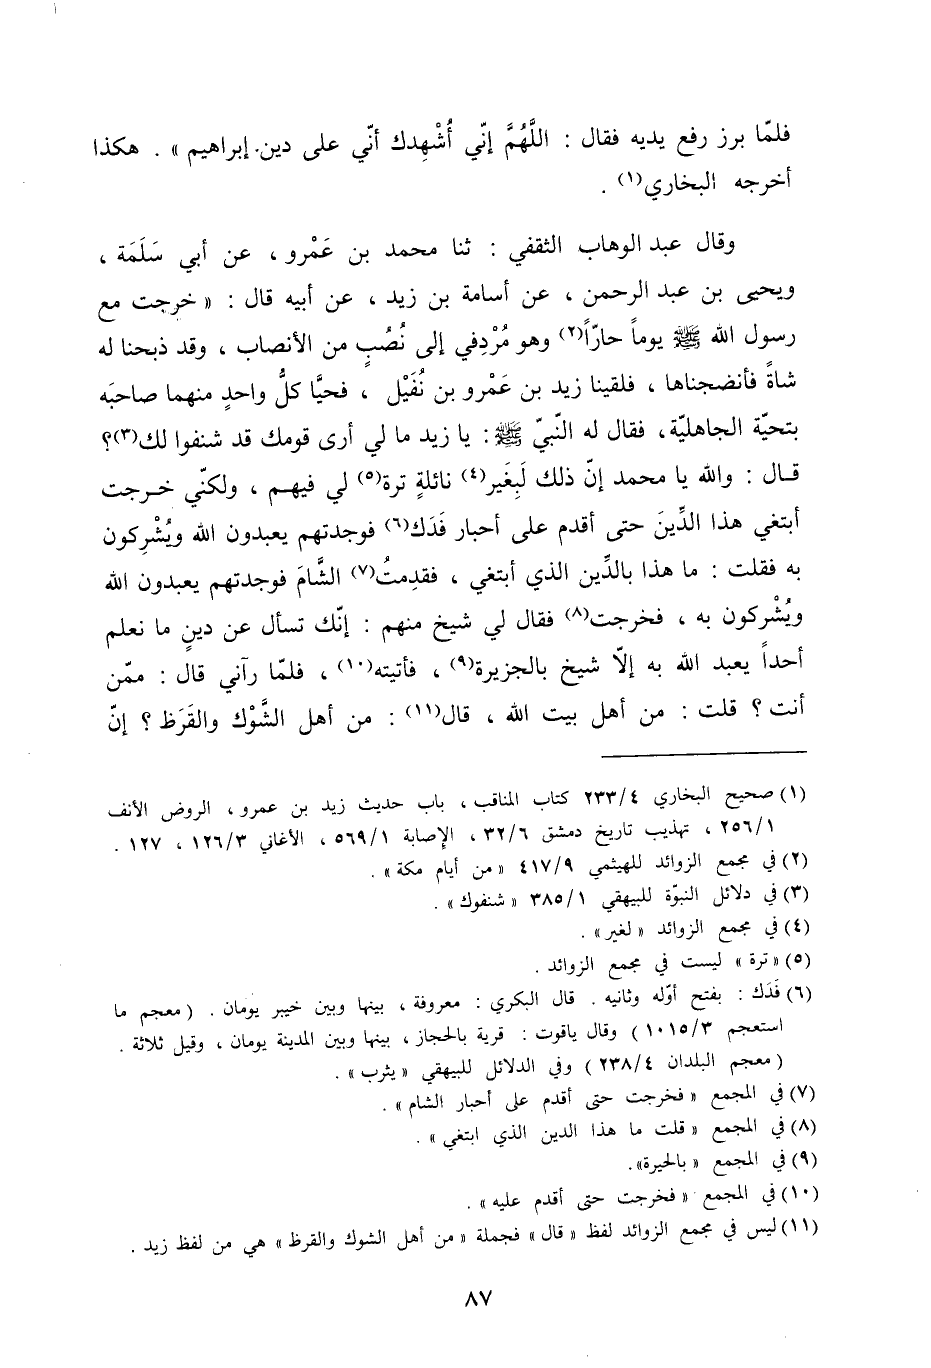 فلمّا برز رفع يديه فقال : اللَّهُمَّ إنّي أُشْهِدك أنّي على دين إبراهيم » . هكذا
أخرجه البخاري(١) .
وقال عبد الوهاب الثقفي : ثنا محمد بن عَمْرو ، عن أبي سَلَمَة ،
ويحيى بن عبد الرحمن ، عن أسامة بن زيد ، عن أبيه قال : « خرجت مع
رسول الله ﷺ يوماً حارّاً(٢) وهو مُرْدِفي إلى نُصُبٍ من الأنصاب ، وقد ذبحنا له
شاةً فأنضجناها ، فلقينا زيد بن عَمْرو بن نُفَيْل ، فحيَّا كلُّ واحدٍ منهما صاحبَه
بتحيّة الجاهليّة، فقال له النّبيّ ﷺ : يا زيد ما لي أرى قومك قد شنفوا لك(٣)؟
قـال : والله يا محمد إنّ ذلك لَبِغَير(٤) نائلةٍ ترة(٥) لي فيهـم ، ولكنّي خـرجت
أبتغي هذا الدِّينَ حتى أقدم على أحبار فَدَك(٦) فوجدتهم يعبدون الله ويُشْرِكون
به فقلت : ما هذا بالدِّين الذي أبتغي ، فقدِمتُ(٧) الشَّامَ فوجدتهم يعبدون الله
ويُشْركون به ، فخرجت(٨) فقال لي شيخ منهم : إنّك تسأل عن دينٍ ما نعلم
أحداً يعبد الله به إلاّ شيخ بالجزيرة(٩) ، فأتيته(١٠) ، فلمّا رآني قال : ممّن
أنت ؟ قلت : من أهل بيت الله ، قال(١١) : من أهل الشَّوْك والقَرَظ ؟ إنّ
(١) صحيح البخاري ٢٣٣/٤ كتاب المناقب ، باب حديث زيد بن عمرو ، الروض الأنف
٢٥٦/١ ، تهذيب تاريخ دمشق ٣٢/٦ ، الإصابة ٥٦٩/١ ، الأغاني ١٢٦/٣ ، ١٢٧ .
(٢) في مجمع الزوائد للهيثمي ٤١٧/٩ « من أيام مكة » .
(٣) في دلائل النبوّة للبيهقي ٣٨٥/١ « شنفوك » .
(٤) في مجمع الزوائد « لغير » .
(٥) « ترة » ليست في مجمع الزوائد .
(٦) فَدَك : بفتح أوّله وثانيه . قال البكري : معروفة ، بينها وبين خيبر يومان . ( معجم ما
استعجم ١٠١٥/٣ ) وقال ياقوت : قرية بالحجاز ، بينها وبين المدينة يومان ، وقيل ثلاثة .
( معجم البلدان ٢٣٨/٤ ) وفي الدلائل للبيهقي « يثرب » .
(٧) في المجمع « فخرجت حتى أقدم على أحبار الشام » .
(٨) في المجمع « قلت ما هذا الدين الذي ابتغي » .
(٩) في المجمع « بالحيرة».
(١٠) في المجمع « فخرجت حتى أقدم عليه » .
(١١) ليس في مجمع الزوائد لفظ « قال » فجملة « من أهل الشوك والقرظ » هي من لفظ زيد .
٨٧